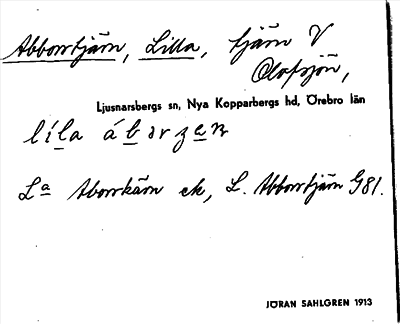 Abborrtjärn, Lilla, tjärn V
Olofsjön,
Ljusnarsbergs sn, Nya Kopparbergs hd, Örebro län
líla
La Aborrkärn ek, L. Abborrtjärn G81.
JÖRAN SAHLGREN 1913